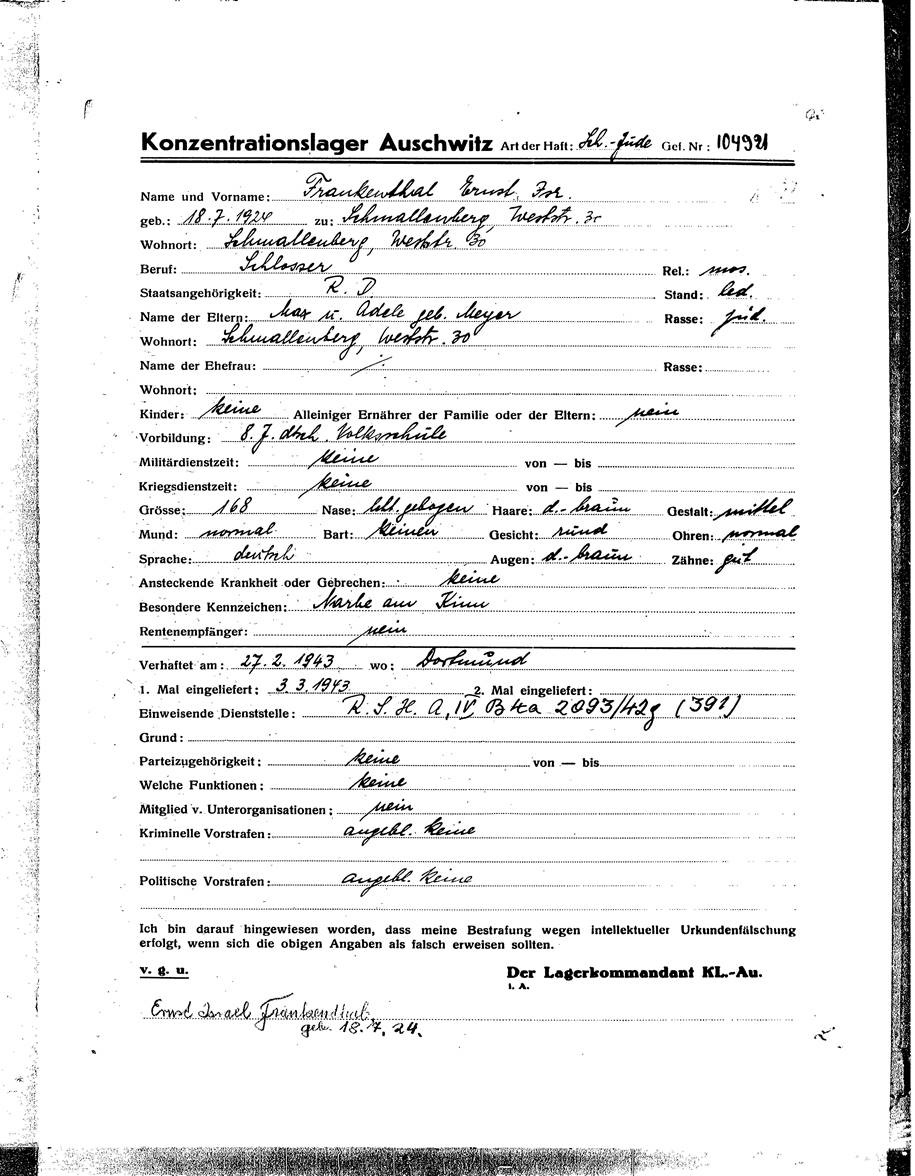 Konzentrationslager Auschwitz Art der Haft: Sch.-Jude Gef. Nr: 104921
Name und Vorname: Frankenthal Ernst Isr.
geb.: 18.7.1924 zu: Schmallenberg, Weststr. 30
Wohnort: Schmallenberg, Weststr. 30
Beruf: Schlosser Rel.: mos.
Staatsangehörigkeit: R. D Stand: led.
Name der Eltern: Max u. Adele geb. Meyer Rasse: jüd.
Wohnort: Schmallenberg, Weststr. 30
Name der Ehefrau: ./. Rasse:
Wohnort:
Kinder: keine Alleiniger Ernährer der Familie oder der Eltern: nein
Vorbildung: 8. J. dtsch. Volksschule
Militärdienstzeit: keine von — bis
Kriegsdienstzeit: keine von — bis
Grösse: 168 Nase: gebogen Haare: d.-braun Gestalt: mittel
Mund: normal Bart: keinen Gesicht: rund Ohren: normal
Sprache: deutsch Augen: d.-braun Zähne: gut
Ansteckende Krankheit oder Gebrechen: keine
Besondere Kennzeichen: Narbe am Kinn
Rentenempfänger: nein
Verhaftet am: 27.2.1943 wo: Dortmund
1. Mal eingeliefert: 3.3.1943 2. Mal eingeliefert:
Einweisende Dienststelle: R. S. H. A, IV B 4a 2093/42g (391)
Grund:
Parteizugehörigkeit: keine von — bis
Welche Funktionen: keine
Mitglied v. Unterorganisationen: nein
Kriminelle Vorstrafen: angebl. keine
Politische Vorstrafen: angebl. keine
Ich bin darauf hingewiesen worden, dass meine Bestrafung wegen intellektueller Urkundenfälschung
erfolgt, wenn sich die obigen Angaben als falsch erweisen sollten.
v. g. u. Der Lagerkommandant KL.-Au.
I. A.
Ernst Israel Frankenthal
geb. 18.7.24.